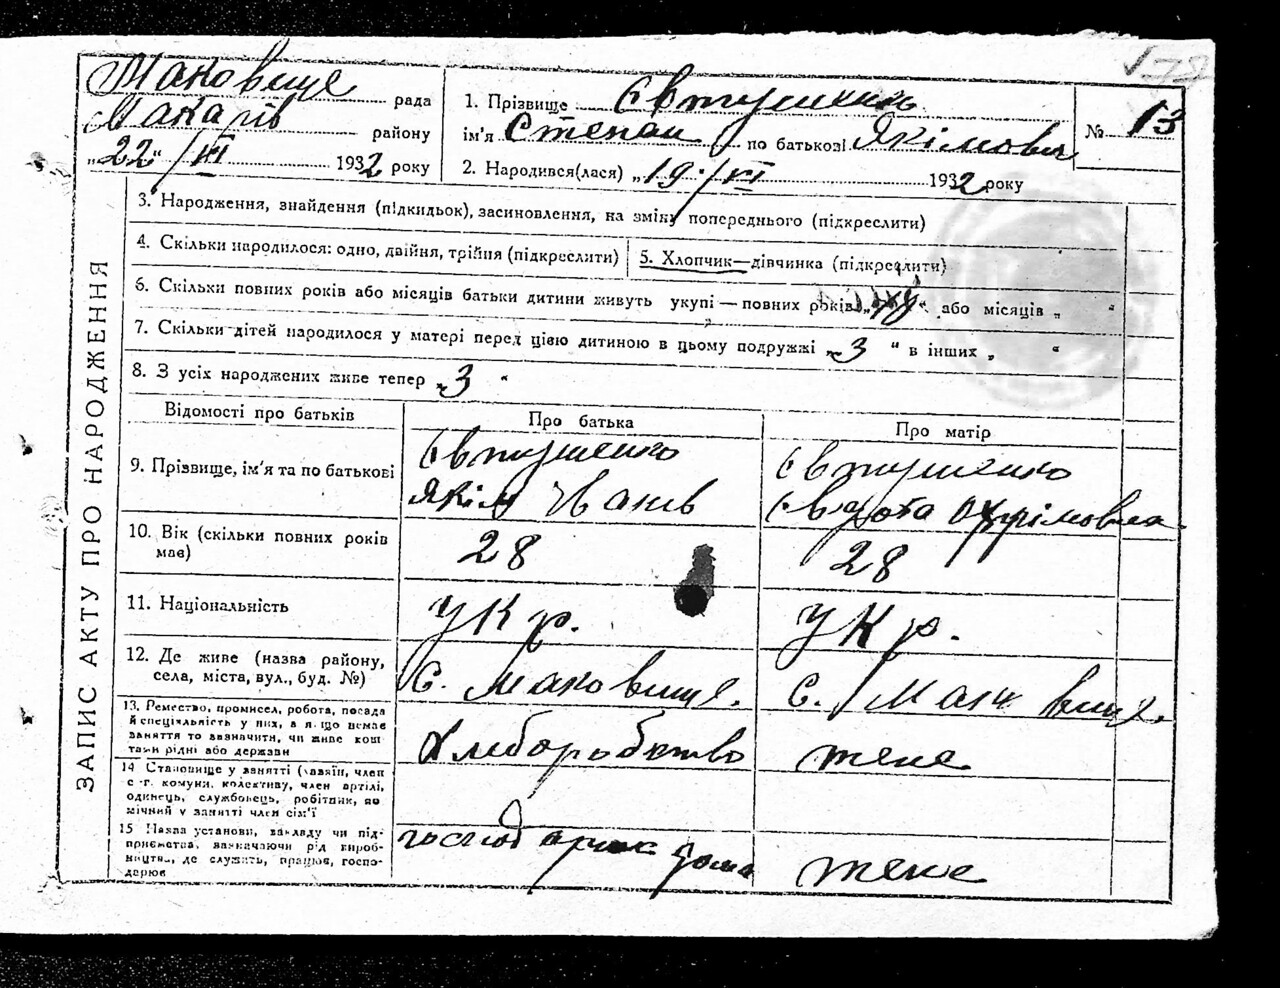 Маковище рада
Макарів району
„22“/VI 1932 року
1. Прізвище Євтушенко
ім'я Степан по батькові Якімович
2. Народився(лася) „19“/VI 1932 року
№ 13
ЗАПИС АКТУ ПРО НАРОДЖЕННЯ
3. Народження, знайдення (підкидьок), засиновлення, на зміну попереднього (підкреслити)
4. Скільки народилося: одно, двійня, трійня (підкреслити)
5. Хлопчик—дівчинка (підкреслити)
6. Скільки повних років або місяців батьки дитини живуть укупі — повних років „ “ або місяців „ “
7. Скільки дітей народилося у матері перед цією дитиною в цьому подружжі „3“ в інших „ “
8. З усіх народжених живе тепер „3“
Відомості про батьків Про батька Про матір
9. Прізвище, ім'я та по батькові
Євтушенко
Якім Іванів
Євтушенко
Євдота Охрімовна
10. Вік (скільки повних років має)
28
28
11. Національність
Укр.
Укр.
12. Де живе (назва району,
села, міста, вул., буд. №)
С. Маковище.
С. Маковище.
13. Ремество, промисел, робота, посада
й спеціяльність у них, а якщо немає
заняття то зазначити, чи живе кош
тами рідні або держави
Хліборобство
жене
14 Становище у занятті (хазяїн, член
с-г. комуни, колективу, член артілі,
одинець, службовець, робітник, по
мічний у занятті член сім'ї
15 Назва установи, закладу чи під-
приємства, зазначаючи рід вироб-
ництва, де служить, працює, госпо-
дарює
дома
жене